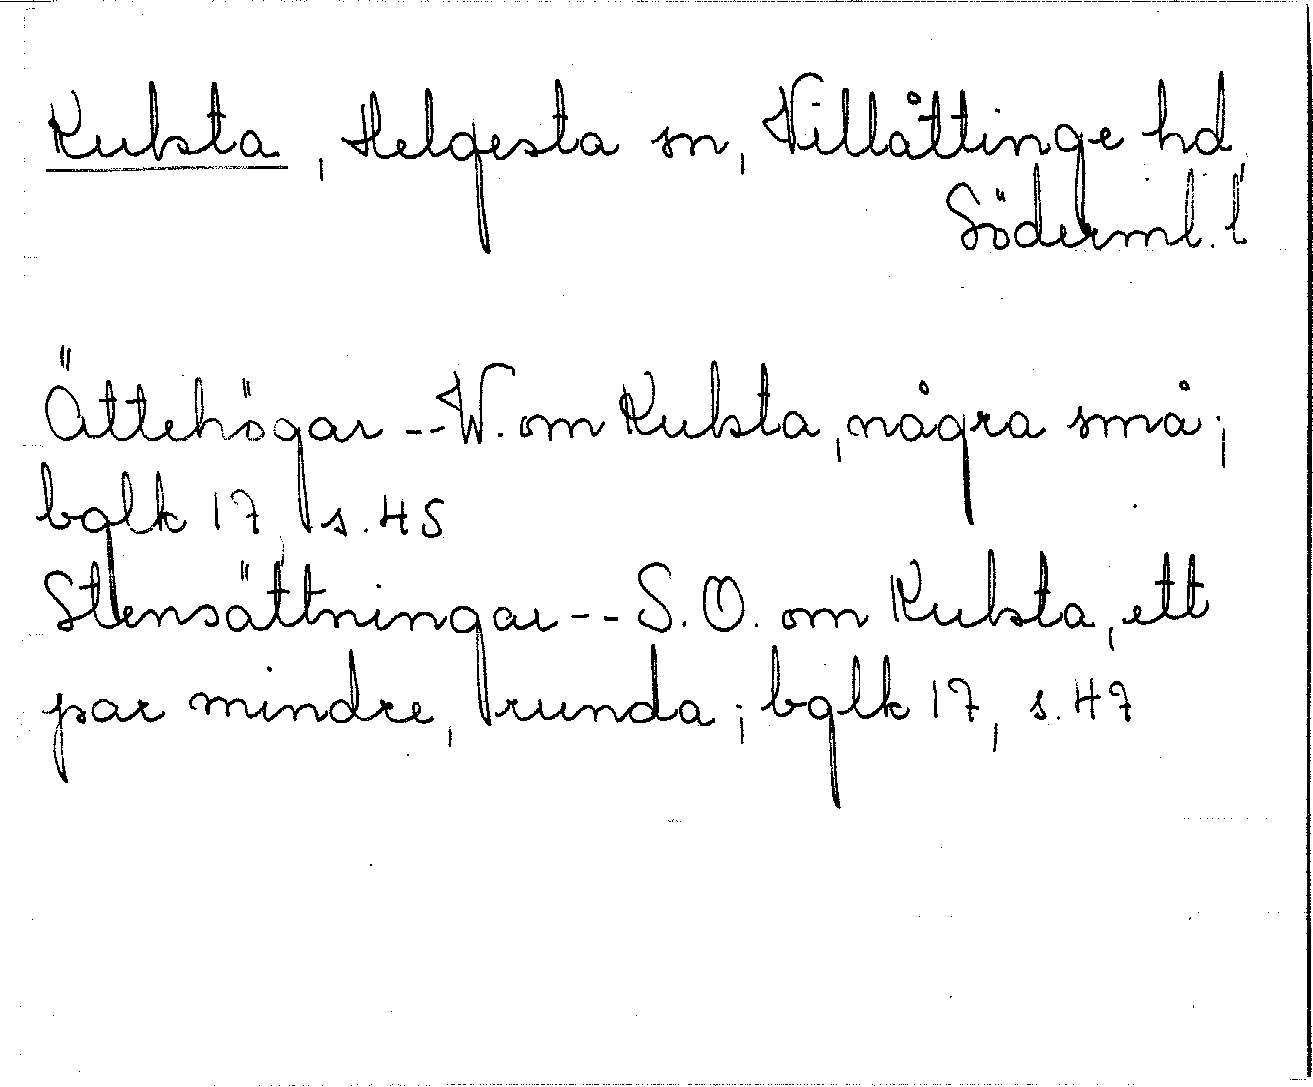 Kubsta, Helgesta sn, Villåttinge hd,
Söderml. l
Ättehögar -- W. om Kubsta, några små;
bglk 17, s. 45
Stensättningar -- S.O. om Kubsta, ett
par mindre, runda; bglk 17, s. 47